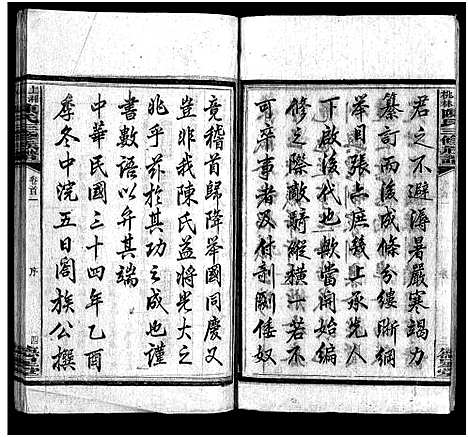 桃林陳氏三修族譜
君之不避溽暑嚴寒竭力
纂訂而後成條分縷晰綱
舉目張上庶幾上承先人
下啟後代也歟當開始編
修之際縱橫十餘
可卒者及付剞劂倭奴
竟稽首歸降舉國同慶又
豈非我陳氏益將光大之
兆乎茲於其功之成也謹
書數語以弁其端
中華民國三十四年乙酉
季冬中浣五日闔族公撰
上湘陳氏三修族譜
卷首一
序
四